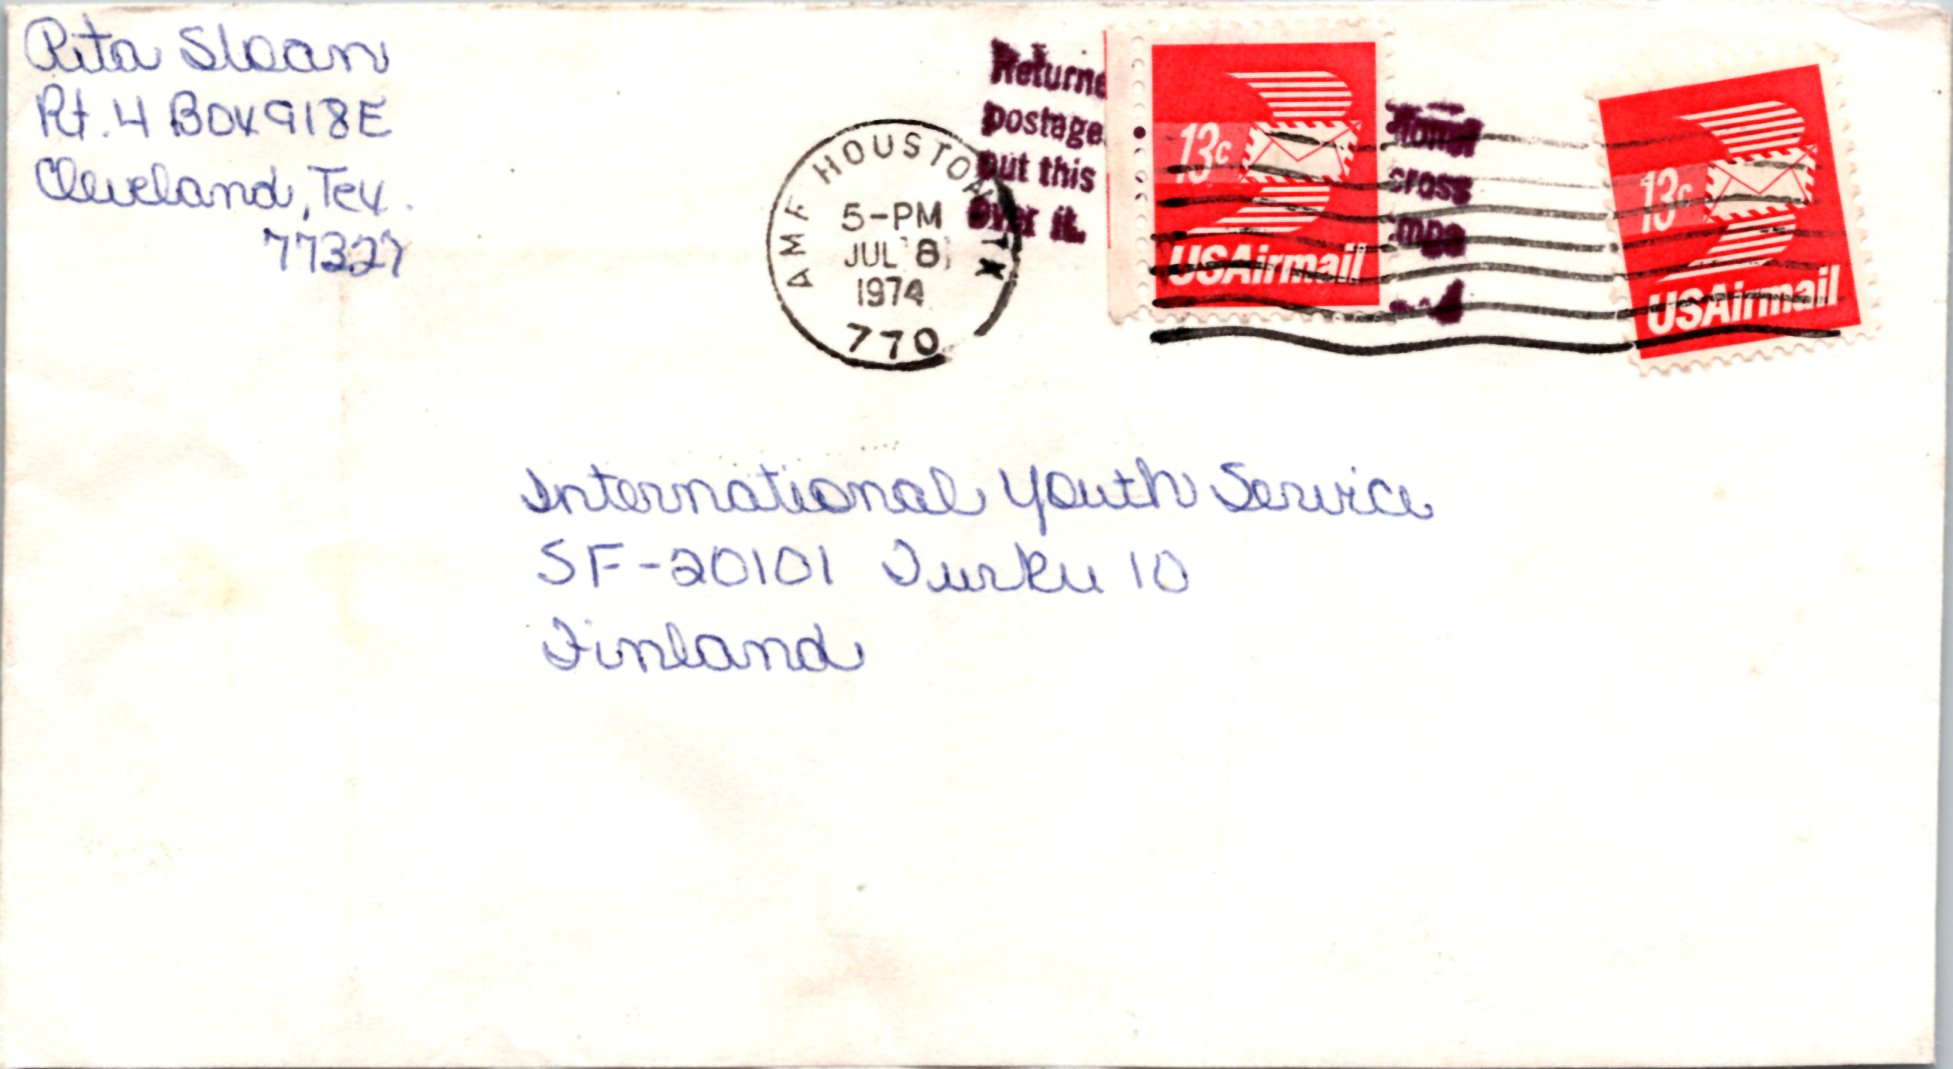 Rita Sloan
Rt. 4 Box 918E
Cleveland, Tex.
77327
AMF HOUSTON TX
5-PM
JUL 8
1974
770
Returne
postage
out this
over it.
tional
cross
mpa
13c
USAirmail
13c
USAirmail
International Youth Service
SF-20101 Turku 10
Finland